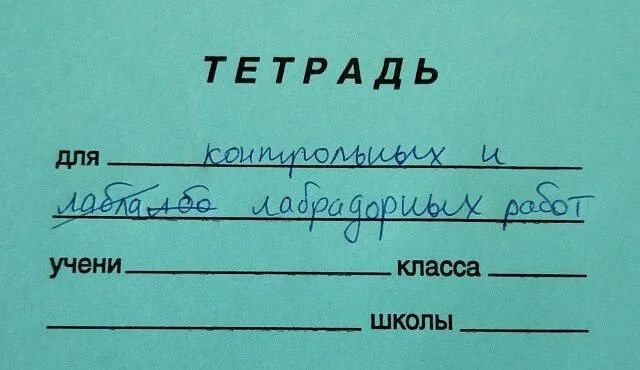 ТЕТРАДЬ
для контрольных и
лабрадорных работ
учени класса
школы